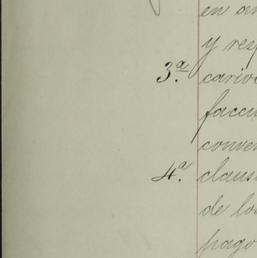 en
y res
3.ª cario
facu
conve
4.ª claus
de lo
pago